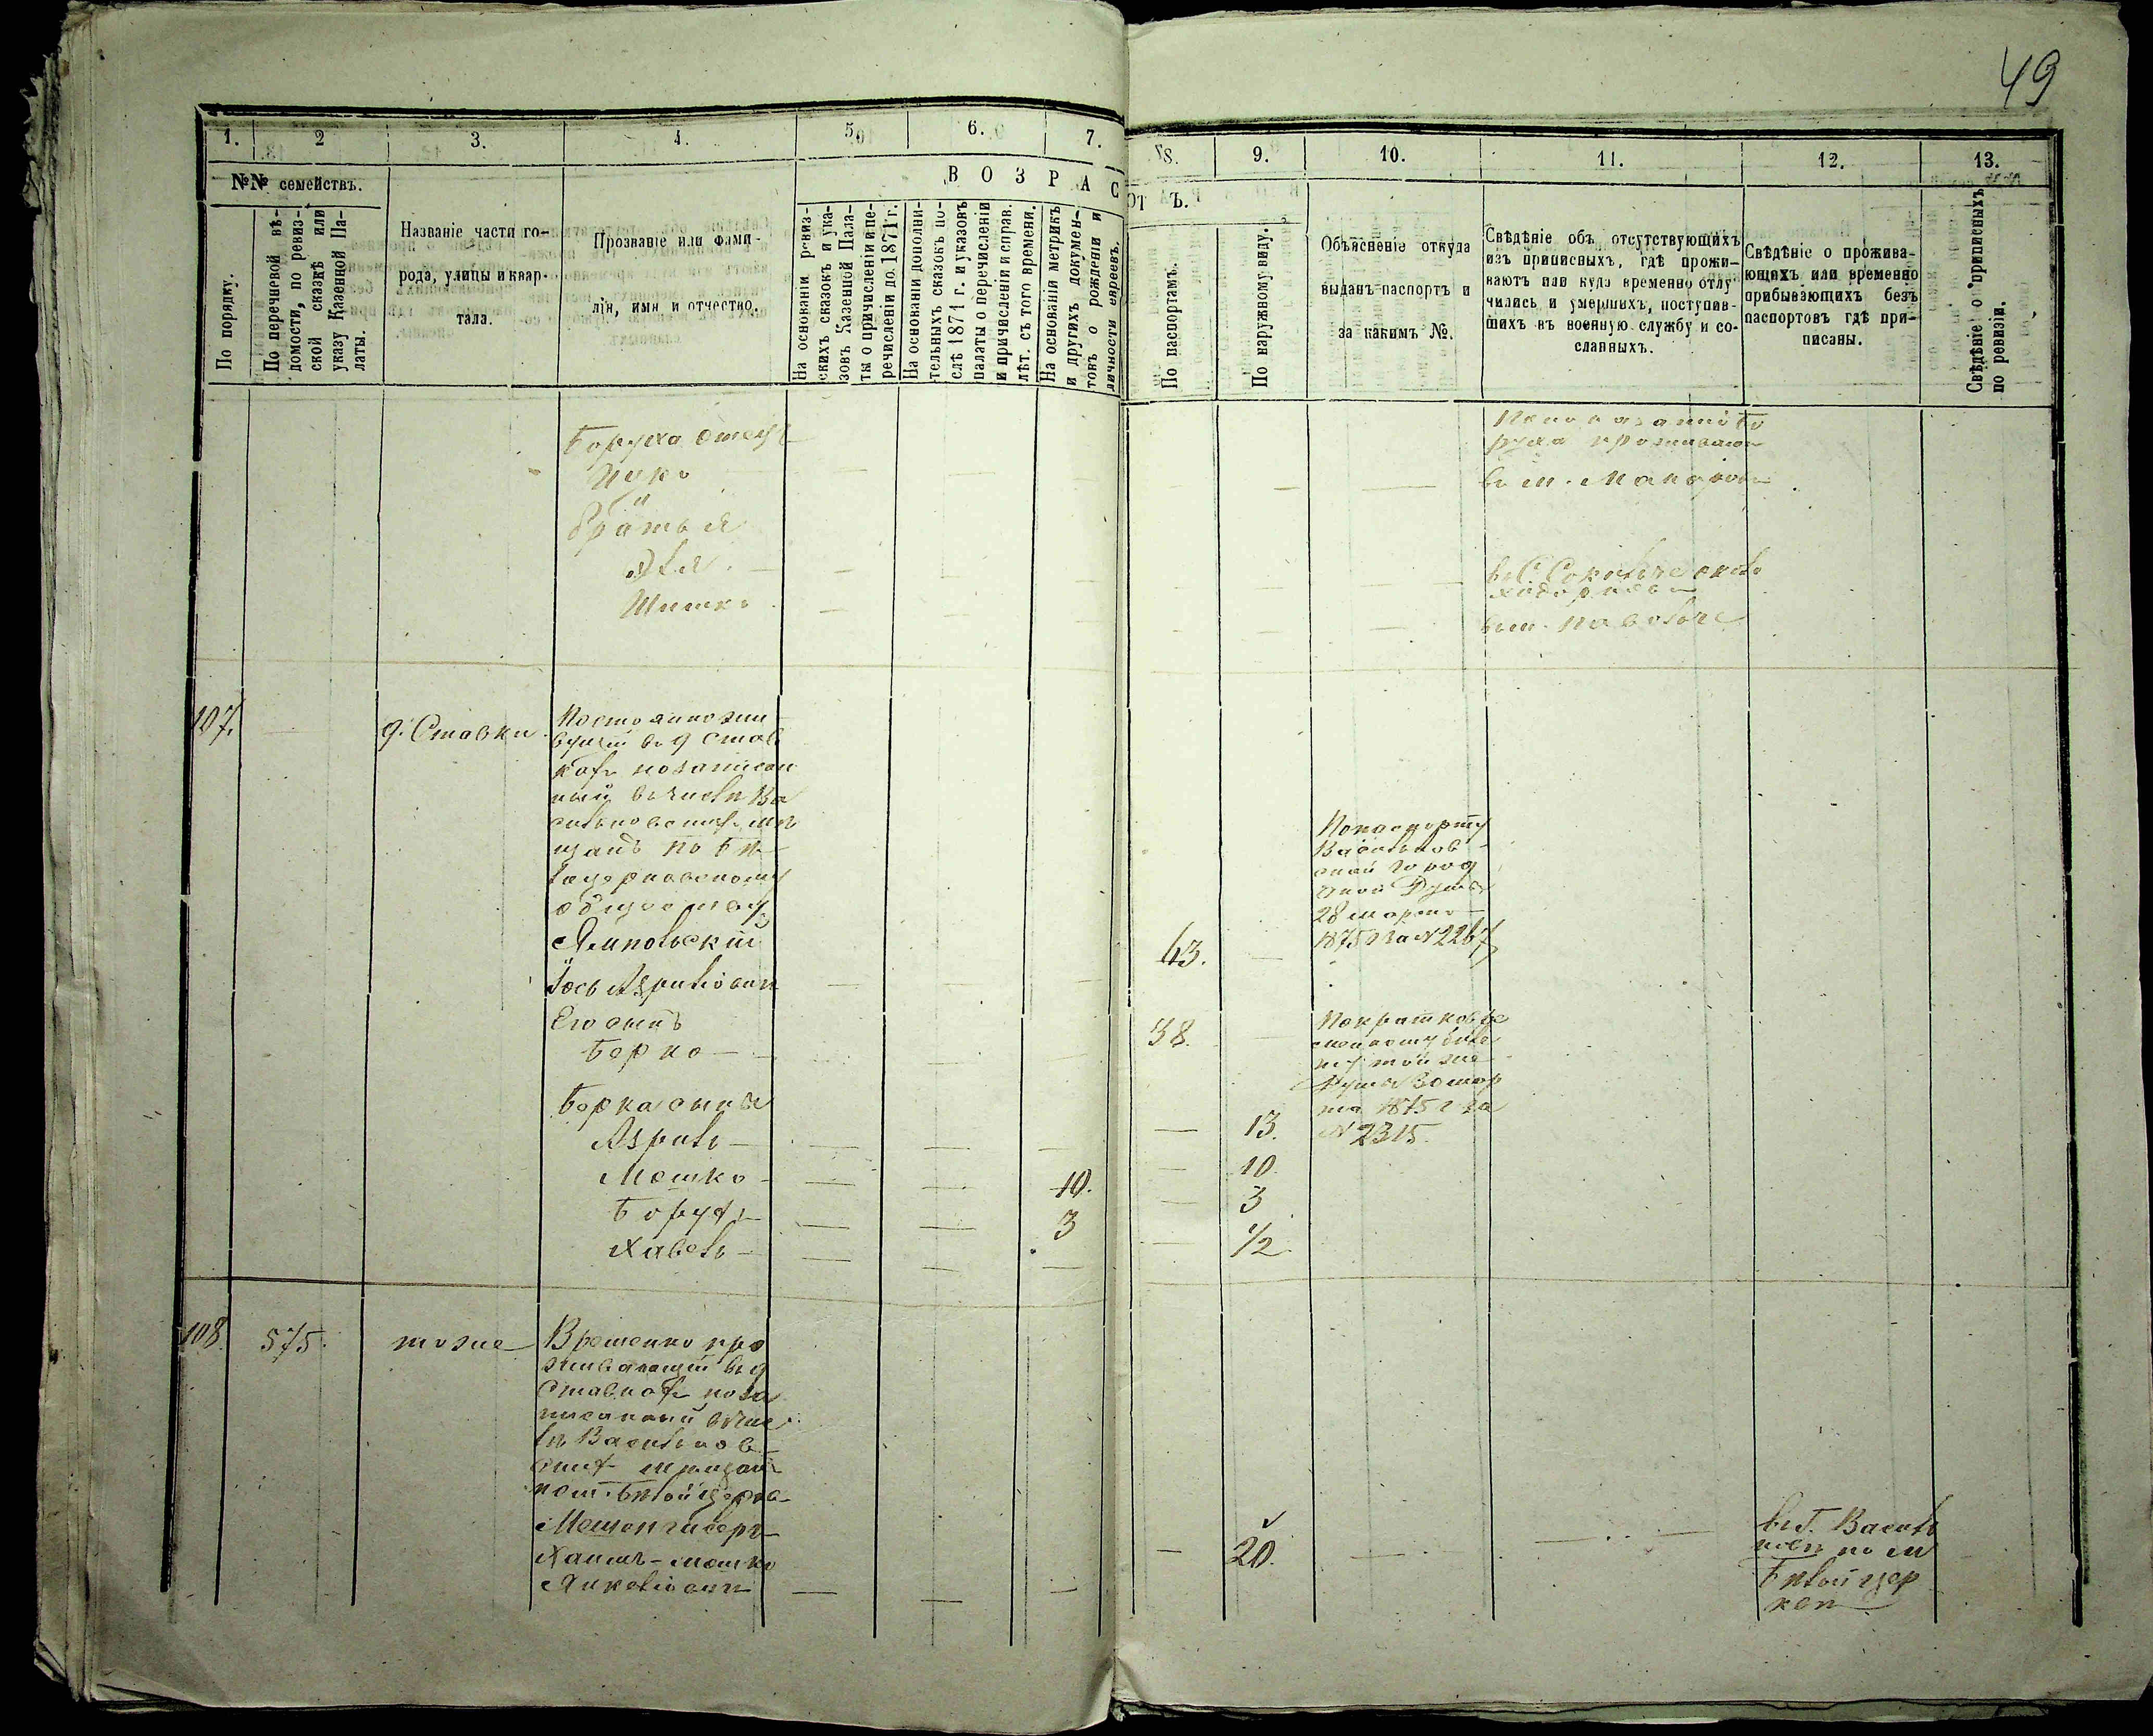 49
1. 2 3. 4. 5 6. 7. 8. 9. 10. 11. 12. 13.
№№ семействъ.
В О З Р А С
ОТ Ъ.
По порядку.
По перечневой вѣ-
домости, по ревиз-
ской сказкѣ или
указу Казенной Па-
латы.
Названіе части го-
рода, улицы и квар-
тала.
Прозваніе или фами-
лія, имя и отчество.
На основаніи ревиз-
скихъ сказокъ и ука-
зовъ Казенной Пала-
ты о причисленіи и пе-
речисленіи до 1871 г.
На основаніи дополни-
тельныхъ сказокъ по-
слѣ 1871 г. и указовъ
палаты о перечисленіи
и причисленіи и справ.
лѣт. съ того времени.
На основаніи метрикъ
и другихъ докумен-
товъ о рожденіи и
личности евреевъ.
По паспортамъ.
По наружному виду.
Объясненіе откуда
выданъ паспортъ и
за какимъ №.
Свѣдѣніе объ отсутствующихъ
изъ приписныхъ, гдѣ прожи-
ваютъ или куда временно отлу
чились и умершихъ, поступив-
шихъ въ военную службу и со-
сланныхъ.
Свѣдѣніе о прожива-
ющихъ или временно
прибывающихъ безъ
паспортовъ гдѣ при-
писаны.
Свѣдѣніе о приписныхъ
по ревизіи.
Боруха
братья
Шмко
въ м. Макаров
въ м. Паволоче
107. д. Ставки
Постоянно жи
вущій въ д Став
кахъ позаписан
ный въ числѣ Ва
сильковскихъ мѣ
щанъ по Бѣ
лоцерковскому
обществу
Ямпольскій
Іось Азрилiовичъ
63.
Попаспорту
Васильков
ской город
ской Думы
28 марта
1875 г за № 2267
Его сынъ
Берко
38.
Пократковре
менному биле
ту той же
Думы 30 мар
та 1875 г за
№ 2315.
Берка сыновья
Азриль 13.
Мошко 10. 10.
Борухъ 3 3
Хавель 1/2
108. 575. тоже
Временно про
живающій въ д
Ставкахъ поза
писанный въ чис
лѣ Васильков
скихъ мѣщанъ
пом. Бѣлой Церкв
Хаимъ-Мошко
Янкелiовичъ
20.
въ г. Василь
ковѣ по м
Бѣлой цер
квѣ